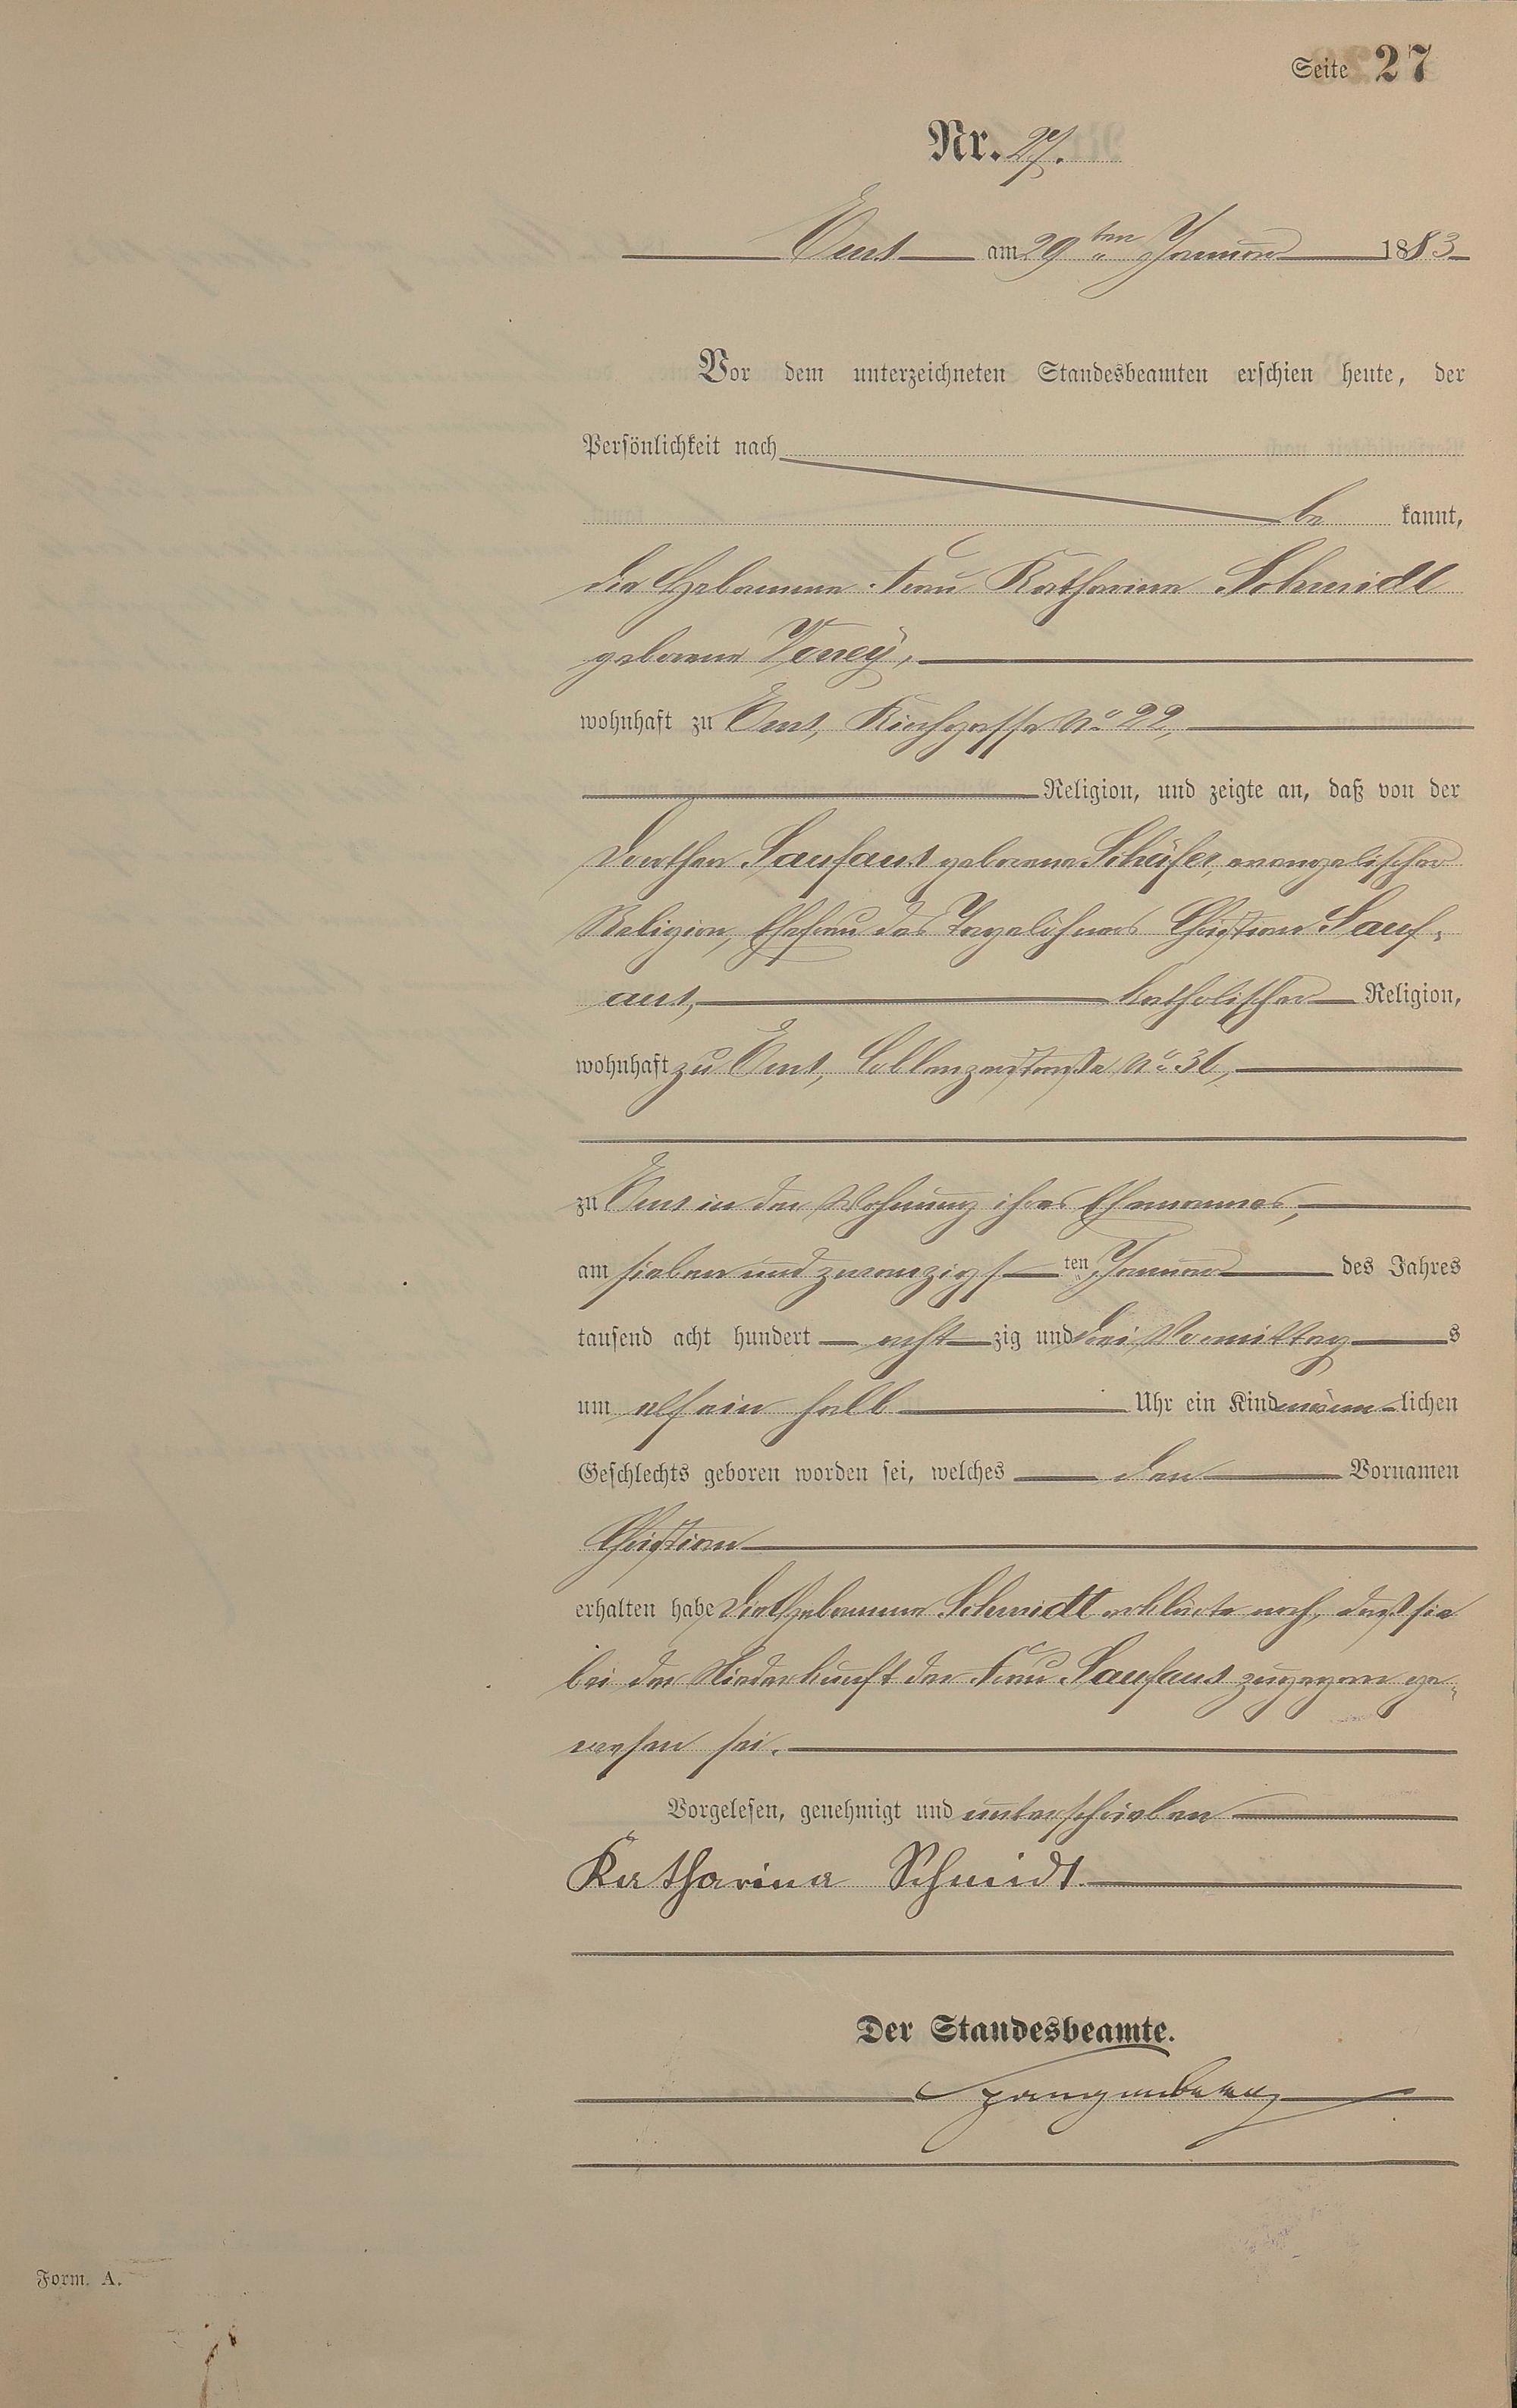 Seite 27
Nr. 27.
Ems am 29ten Januar 1883
Vor dem unterzeichneten Standesbeamten erschien heute, der
Persönlichkeit nach
be kannt,
die Hebamme Frau Katharina Schmidt
geborene
wohnhaft zu Ems, Kirchgasse No 22,
Religion, und zeigte an, daß von der
Dorothea Saufaus geborene Schäfer, evangelischer
Religion, Ehefrau des Tagelöhners Christian Sauf-
aus, katholischer Religion,
wohnhaft zu Ems, Coblenzerstraße No 36,
zu Ems in der Wohnung ihres Ehemannes,
am sieben und zwanzigsten Januar des Jahres
tausend acht hundert acht zig und drei Vormittags
um elf ein halb Uhr ein Kind männlichen
Geschlechts geboren worden sei, welches den Vornamen
Christian
erhalten habe Die Hebamme Schmidt erklärte noch, daß sie
bei der Niederkunft der Frau Saufaus zugegen ge-
wesen sei.
Vorgelesen, genehmigt und unterschrieben
Katharina Schmidt.
Der Standesbeamte.
Spangenberg
Form. A.